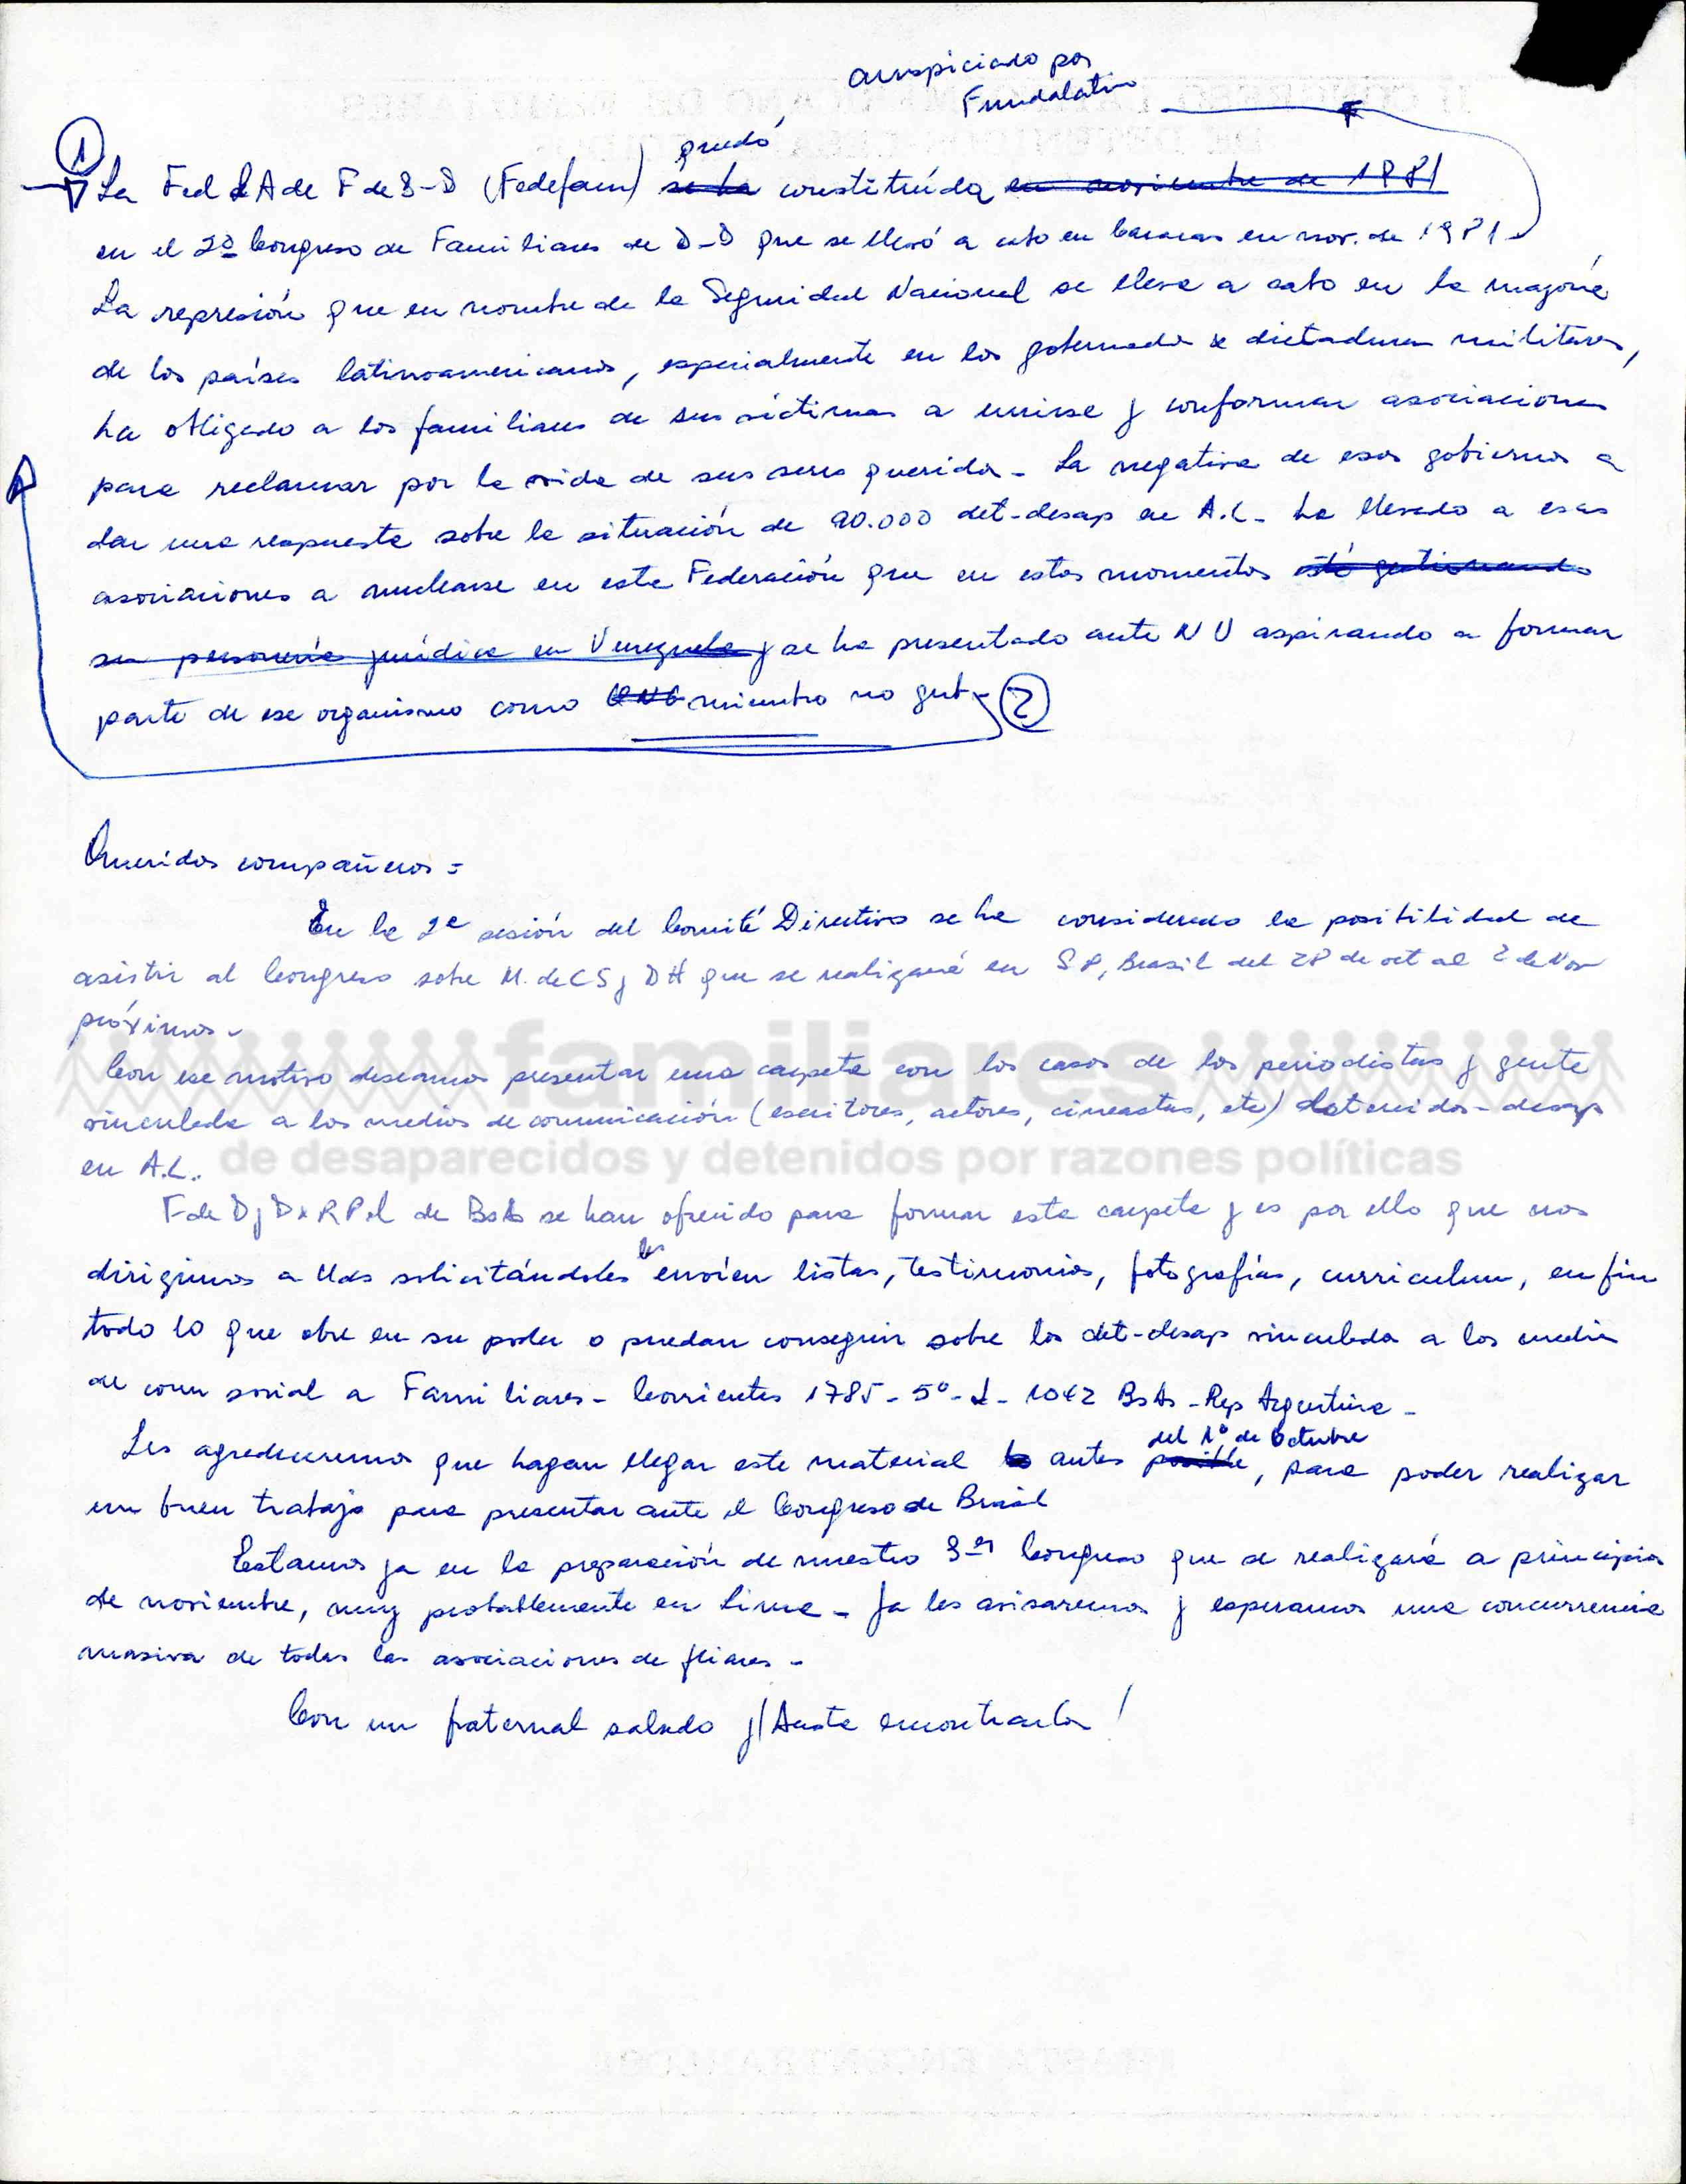 auspiciado por
Fundalatin
quedó
① La Fed L A de F de D-D (Fedefam) se ha constituída en noviembre de 1981
en el 2º Congreso de Familiares de D-D que se llevó a cabo en Caracas en nov. de 1981-
La represión que en nombre de la Seguridad Nacional se lleva a cabo en la mayoría
de los países latinoamericanos, especialmente en los gobernados x dictaduras militares,
ha obligado a los familiares de sus víctimas a unirse y conformar asociaciones
para reclamar por la vida de sus seres queridos - La negativa de esos gobiernos a
dar una respuesta sobre la situación de 90.000 det-desap en A.L - ha llevado a esas
asociaciones a nuclearse en esta Federación que en estos momentos está gestionando
su personería jurídica en Venezuela y se ha presentado ante N U aspirando a formar
parte de ese organismo como ONG miembro no gub - ②
Queridos compañeros =
En la 2ª sesión del Comité Directivo se ha considerado la posibilidad de
asistir al Congreso sobre M. de C S y D H que se realizará en S P, Brasil del 28 de oct al 2 de Nov
próximos -
Con ese motivo deseamos presentar una carpeta con los casos de los periodistas y gente
vinculada a los medios de comunicación (escritores, actores, cineastas, etc) detenidos-desap
en A.L..
familiares
de desaparecidos y detenidos por razones políticas
F de D y D x R Pol de BsAs se han ofrecido para formar esta carpeta y es por ello que nos
les
dirigimos a Uds solicitándoles envíen listas, testimonios, fotografías, curriculum, en fin
todo lo que obre en su poder o puedan conseguir sobre los det-desap vinculados a los medios
de com social a Familiares - Corrientes 1785 - 5º - L - 1042 BsAs - Rep Argentina -
del 1º de Octubre
Les agradeceremos que hagan llegar este material lo antes posible, para poder realizar
un buen trabajo para presentar ante el Congreso de Brasil
Estamos ya en la preparación de nuestro 3er Congreso que se realizará a principios
de noviembre, muy probablemente en Lima - Ya les avisaremos y esperamos una concurrencia
masiva de todas las asociaciones de fliares -
Con un fraternal saludo y ¡Hasta encontrarlos!